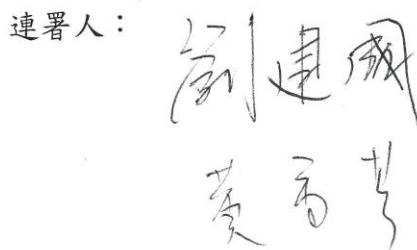 連署人：劉建國
黃秀芳